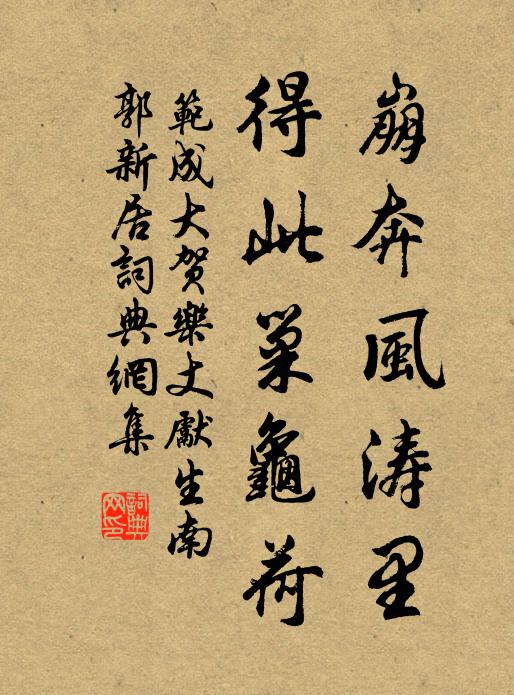 崩奔風涛里
得此巢龜荷
範成大賀樂丈獻生南
郭新居詞典網集
詞典
网印